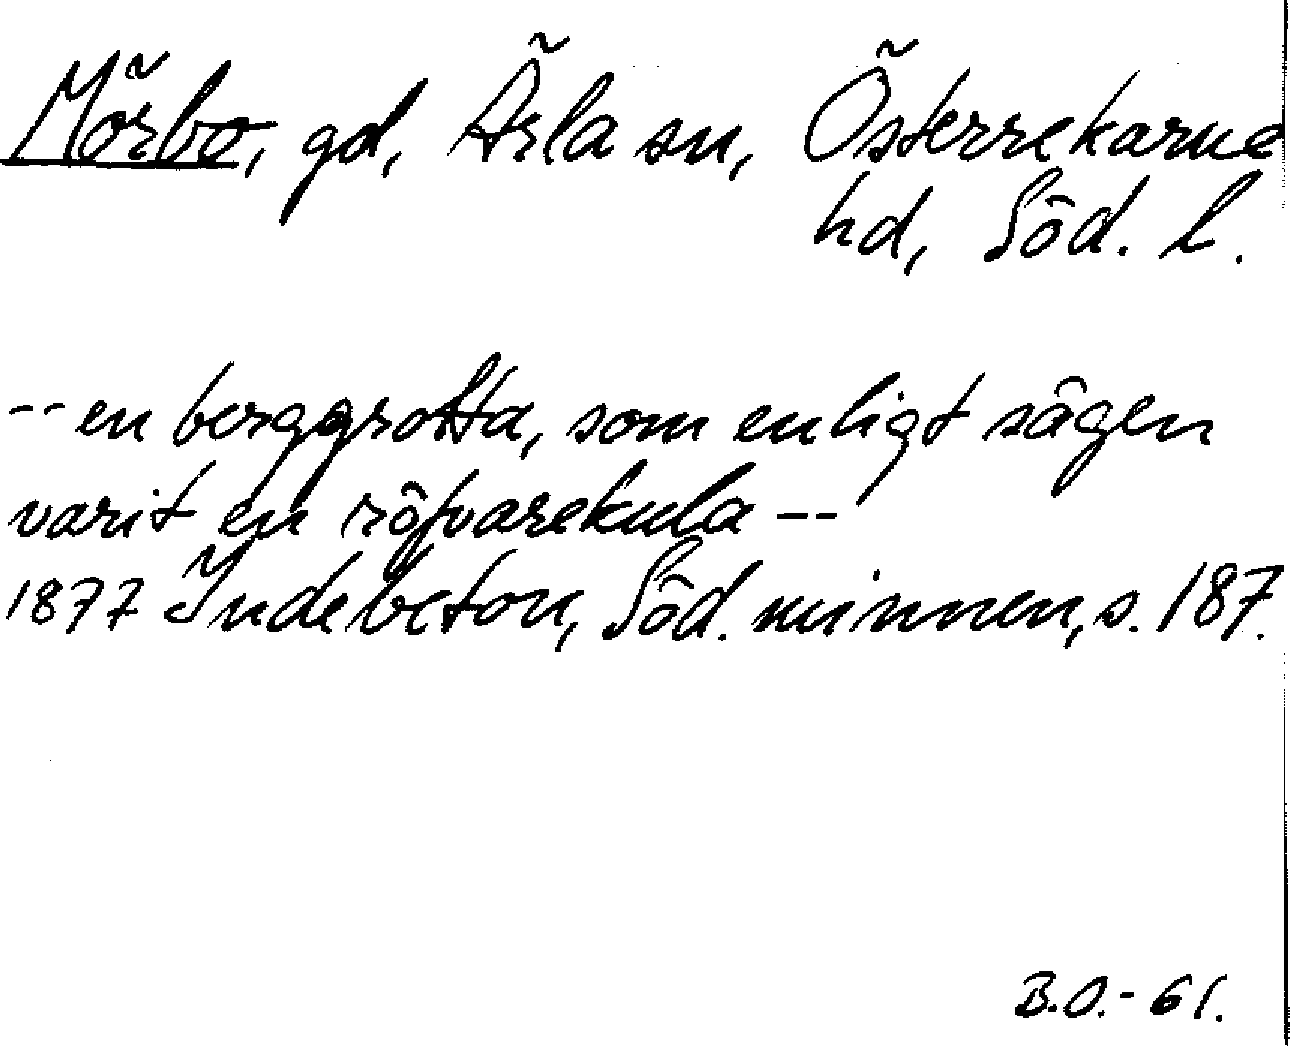 Mörbo, gd, Ärla sn, Österrekarne
hd, Söd. l.
-- en berggrotta, som enligt sägen
varit en röfvarekula --
1877 Indebetou, Söd. minnen, s. 187.
B.O.- 61.